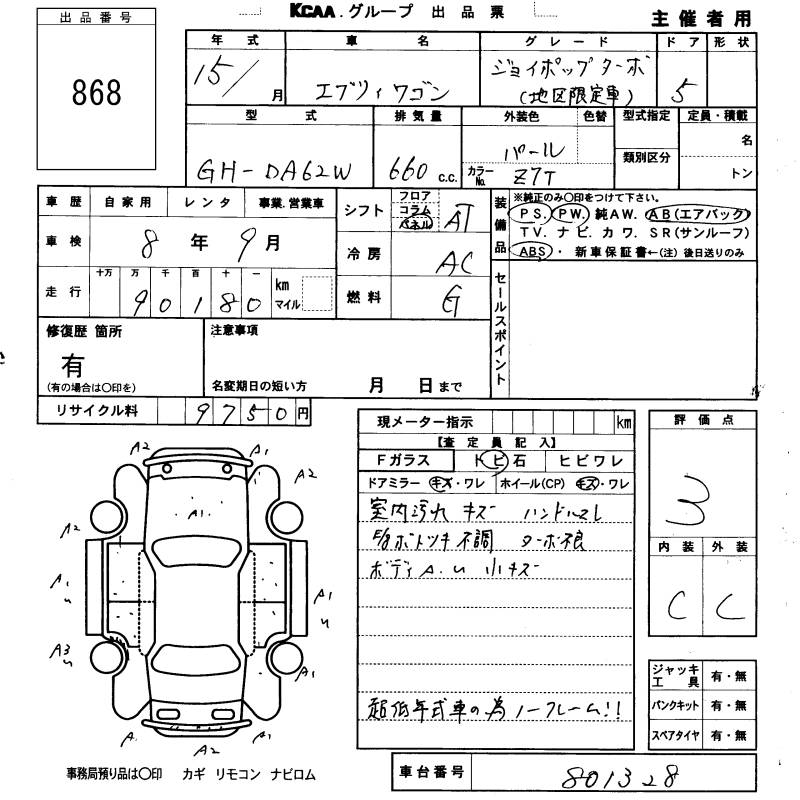 KCAA.グループ 出品票
主催者用
出品番号
868
年式 車名 グレード ドア 形状
15/月 エブリィワゴン ジョイポップターボ 5
(地区限定車)
型式 排気量 外装色 色替 型式指定 定員・積載
GH-DA62W 660 c.c. パール 名
カラーNo. Z7T 類別区分 トン
車歴 自家用 レンタ 事業.営業車
車検 8年9月
走行 十万 万 千 百 十 一
90180 km マイル
シフト フロア コラム パネル AT
冷房 AC
燃料 G
装備品 ※純正のみ○印をつけて下さい。
PS. PW. 純AW. AB(エアバック)
TV. ナビ. カワ. SR(サンルーフ)
ABS ・ 新車保証書←(注) 後日送りのみ
セールスポイント
修復歴 箇所
有
(有の場合は○印を)
注意事項
名変期日の短い方 月 日まで
リサイクル料 9750円
現メーター指示 km
【査定員記入】
Fガラス トビ石 ヒビワレ
ドアミラー キズ・ワレ ホイール(CP) キズ・ワレ
室内汚れ キズ ハンドルスレ
ボトツキ不調 ターボ不良
ボディA.U 小キズ
超低年式車の為ノークレーム!!
評価点
3
内装 外装
C C
ジャッキ工具 有・無
パンクキット 有・無
スペアタイヤ 有・無
車台番号 801328
A2 A1
A2 A2
A1
A2
A1 U A1 U
A3 U A1
A. A2 A1
事務局預り品は○印 カギ リモコン ナビロム